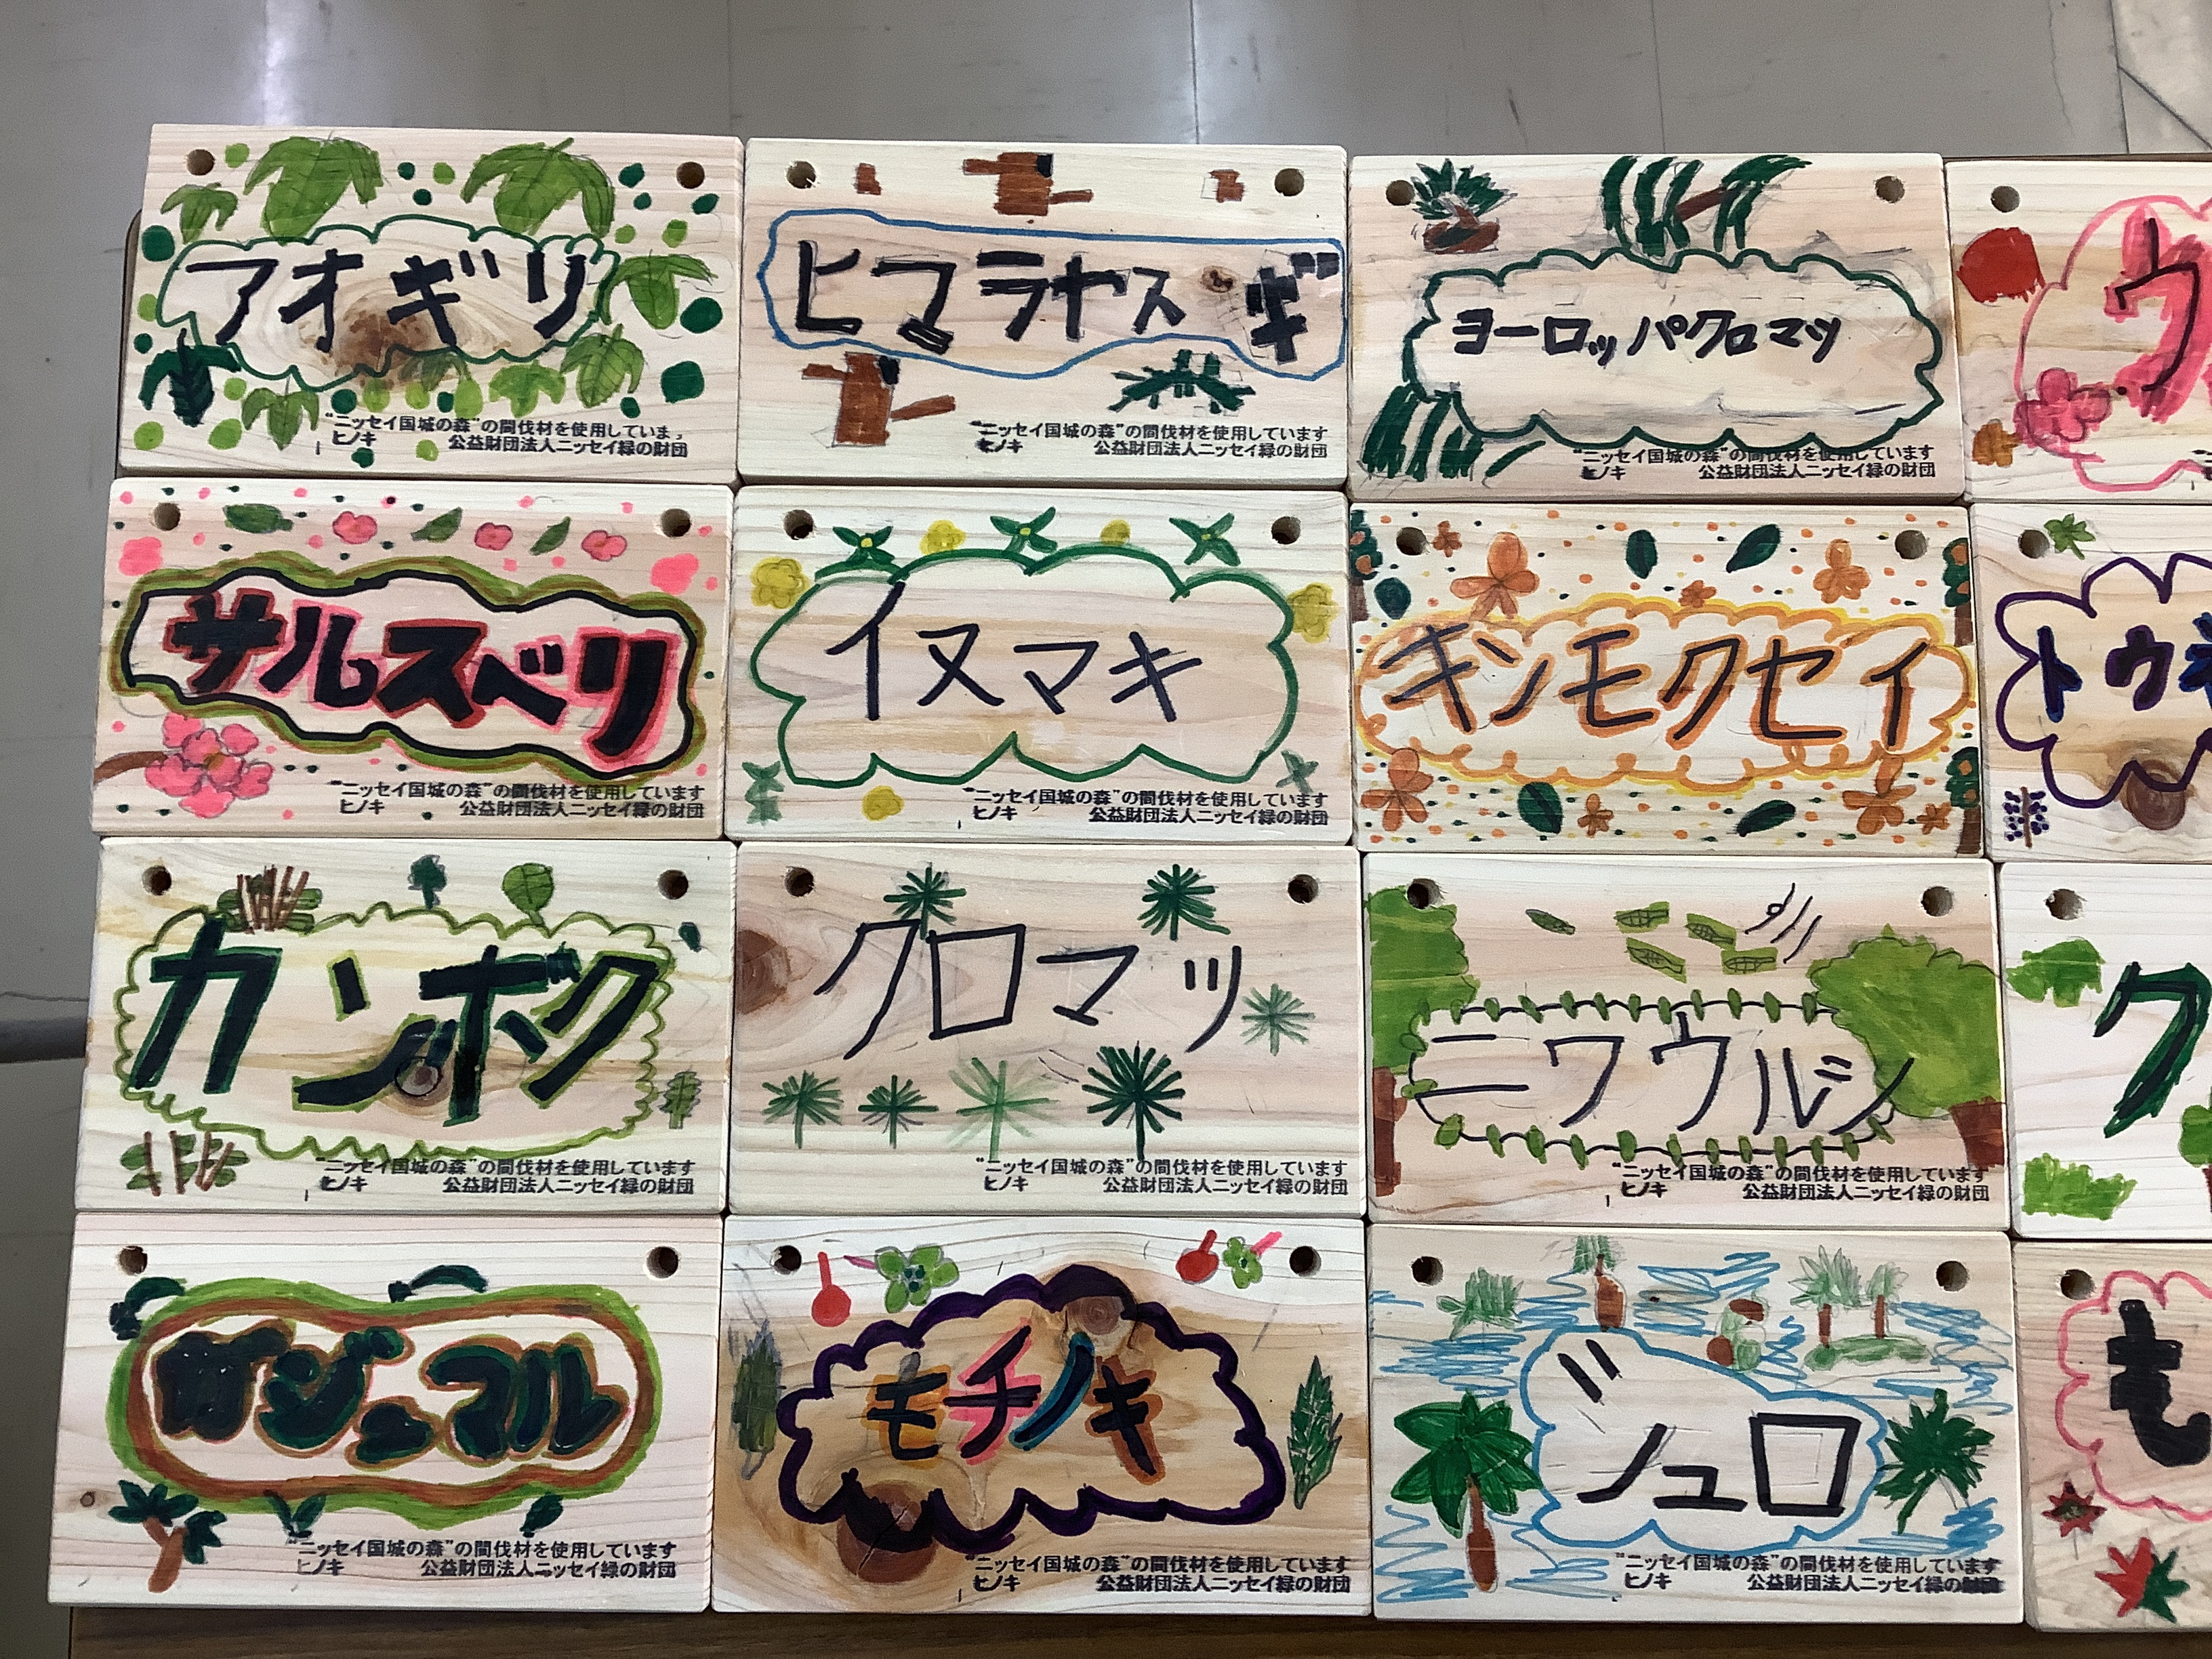 アオギリ
"ニッセイ国城の森"の間伐材を使用していま
ヒノキ 公益財団法人ニッセイ緑の財団
ヒマラヤスギ
"ニッセイ国城の森"の間伐材を使用しています
ヒノキ 公益財団法人ニッセイ緑の財団
ヨーロッパクロマツ
"ニッセイ国城の森"の間伐材を使用しています
ヒノキ 公益財団法人ニッセイ緑の財団
ウ
サルスベリ
"ニッセイ国城の森"の間伐材を使用しています
ヒノキ 公益財団法人ニッセイ緑の財団
イヌマキ
"ニッセイ国城の森"の間伐材を使用しています
ヒノキ 公益財団法人ニッセイ緑の財団
キンモクセイ
トウ
カンボク
"ニッセイ国城の森"の間伐材を使用しています
ヒノキ 公益財団法人ニッセイ緑の財団
クロマツ
"ニッセイ国城の森"の間伐材を使用しています
ヒノキ 公益財団法人ニッセイ緑の財団
ニワウルシ
"ニッセイ国城の森"の間伐材を使用しています
ヒノキ 公益財団法人ニッセイ緑の財団
ク
ガジュマル
"ニッセイ国城の森"の間伐材を使用しています
ヒノキ 公益財団法人ニッセイ緑の財団
モチノキ
"ニッセイ国城の森"の間伐材を使用しています
ヒノキ 公益財団法人ニッセイ緑の財団
シュロ
"ニッセイ国城の森"の間伐材を使用しています
ヒノキ 公益財団法人ニッセイ緑の財団
も